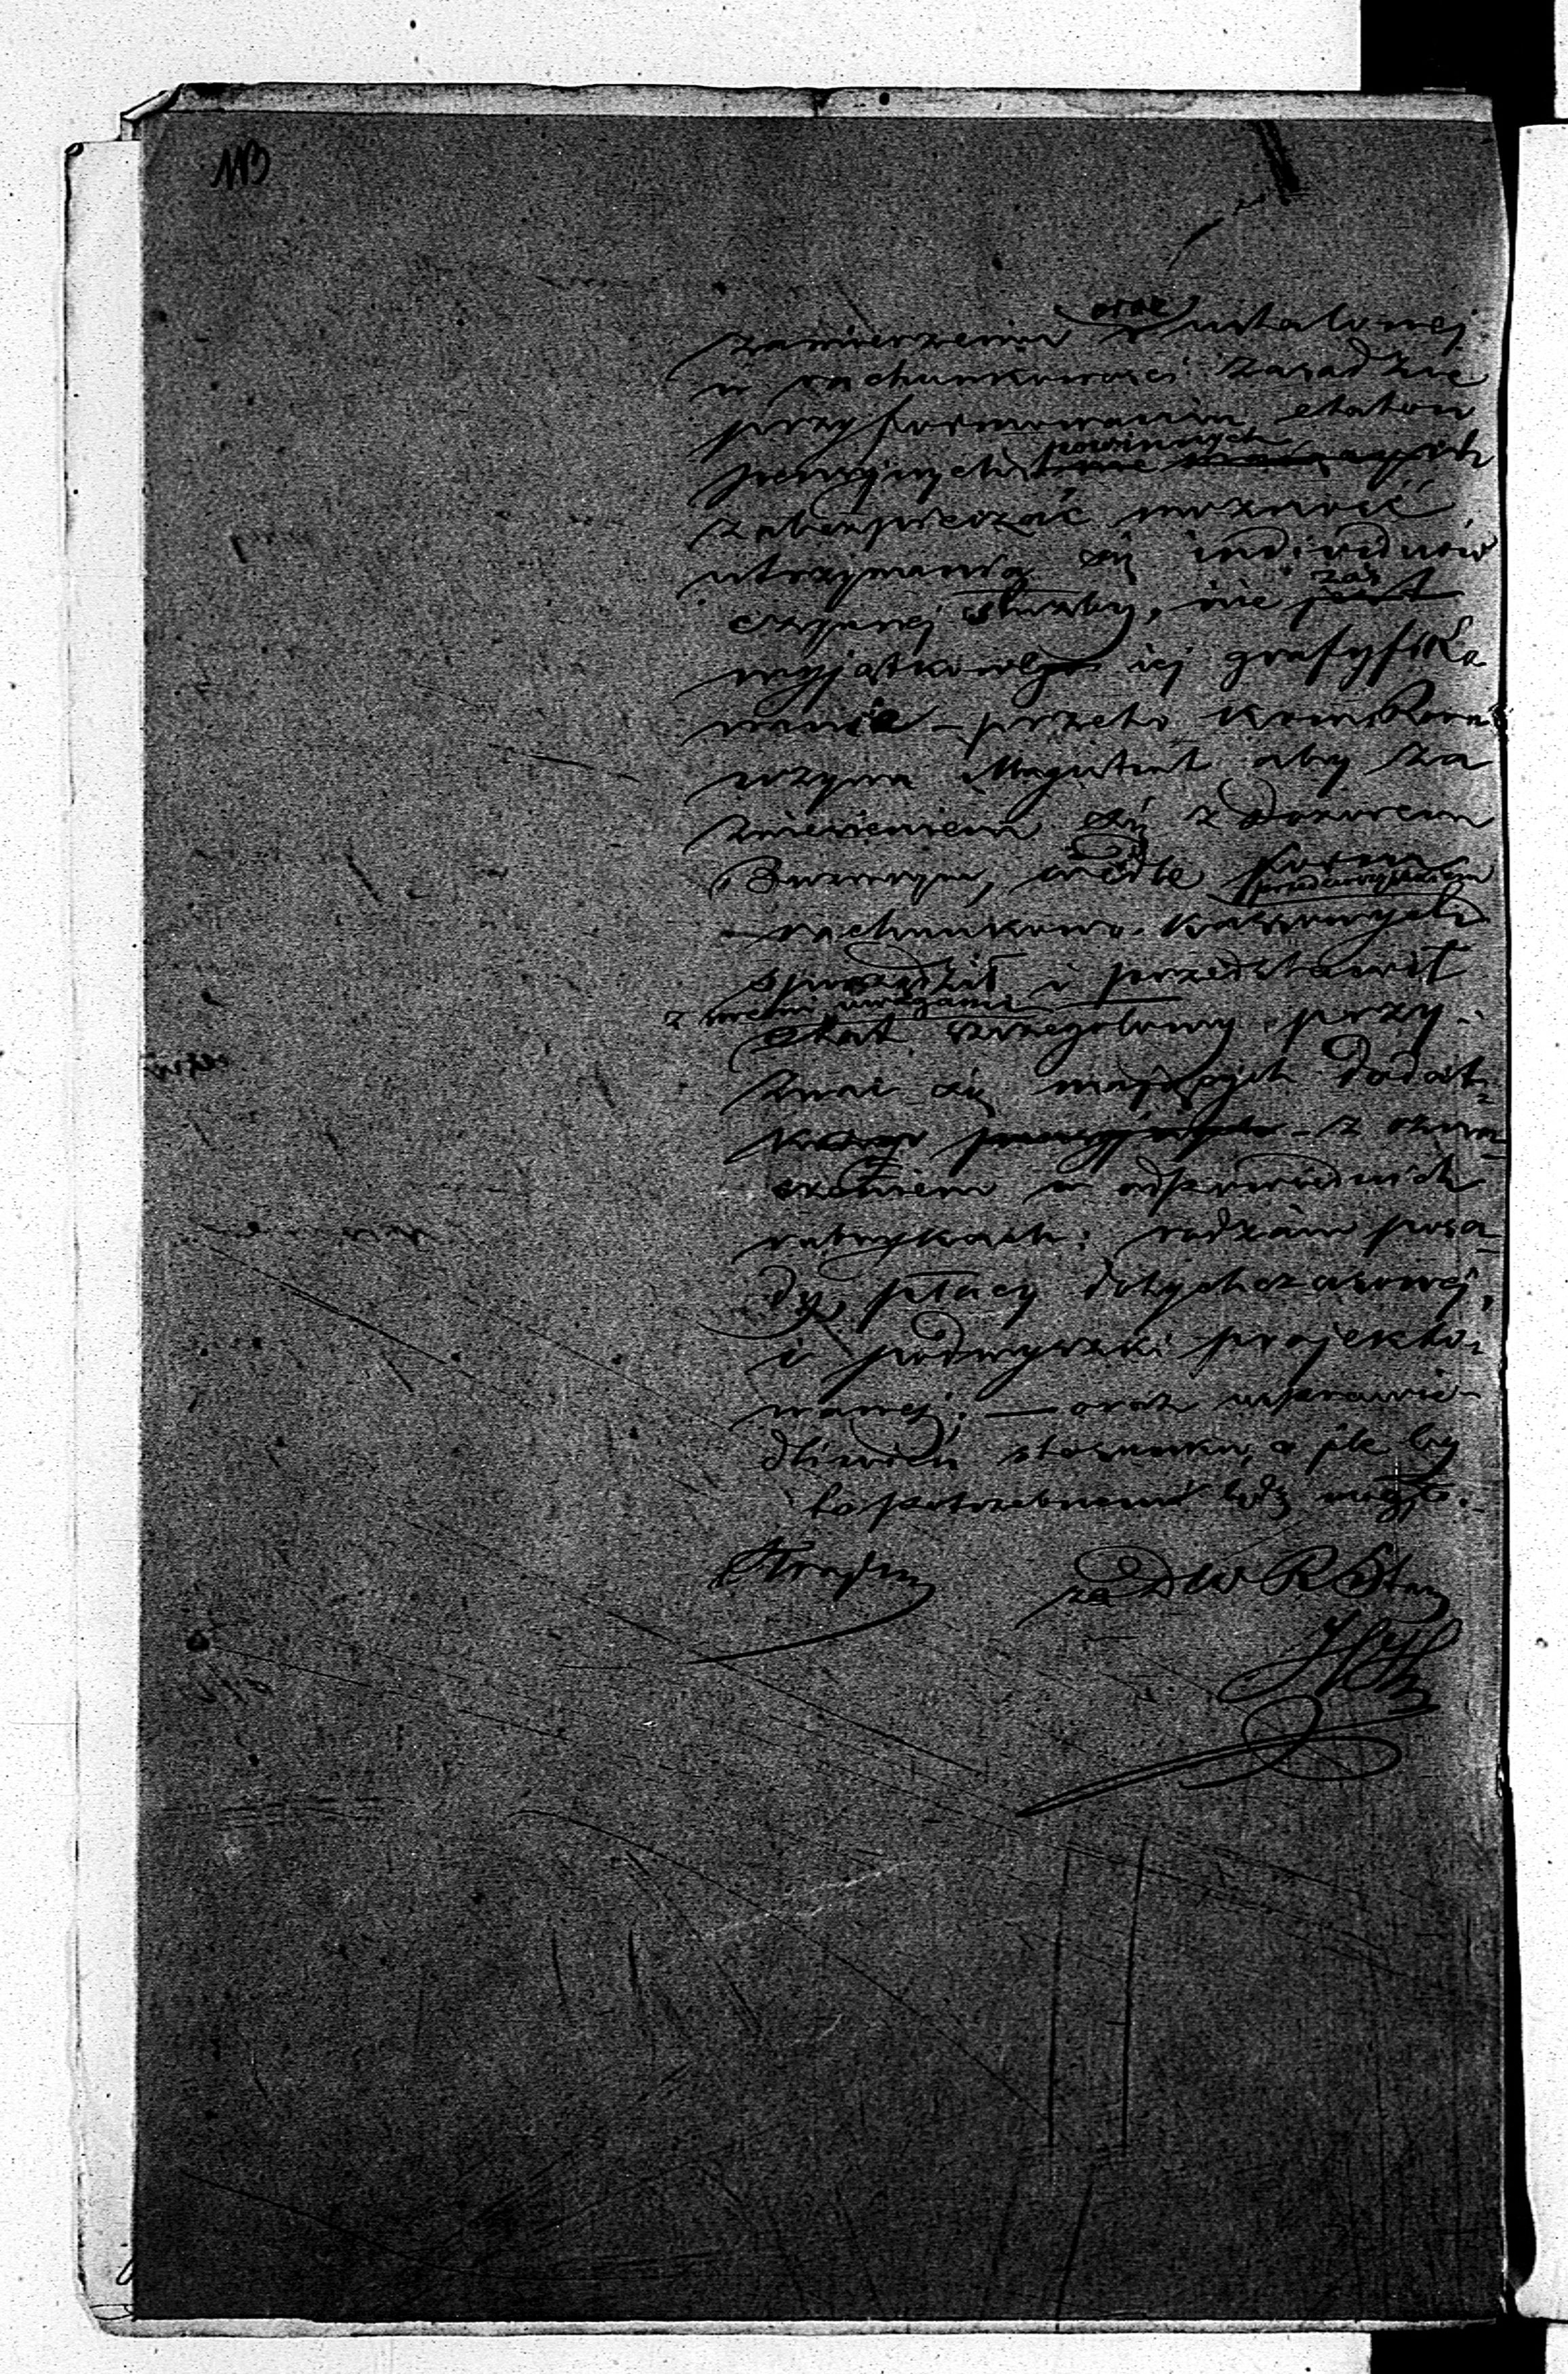 113
zamierzenia oraz ustalonej
w rachunkowości zasadzie
przy formowaniu etatów
pensyjnych powinnych
zabezpieczać możność
utrzymania się individuów
czynnej służby, nie zaś
wyjątkowe jej gratyfiko
wanie – przeto
wzywa Magistrat aby za
zniesieniem się z Dozorem
Bużniczym, wedle form
rachunkowo-kassowych
sporządził i przedstawił
z swemi uwagami
etat szczegółowy przy-
znać się mających dodat-
z ozna-
czeniem w odpowiednich
rubrykach: rodzaju posa-
dy, płacy dotychczasowej,
i podwyżki projekto-
wanej; — oraz usprawie-
dliwień stosunku, o ile by
to potrzebnem być mogło.